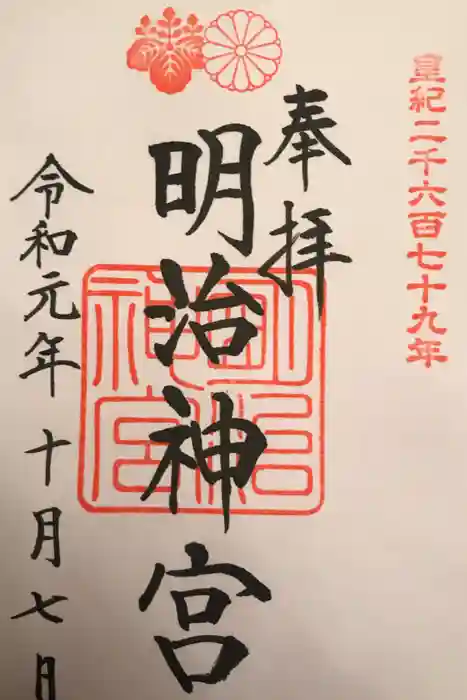 皇紀二千六百七十九年
奉拝
明治神宮
明治神宮
令和元年十月七日